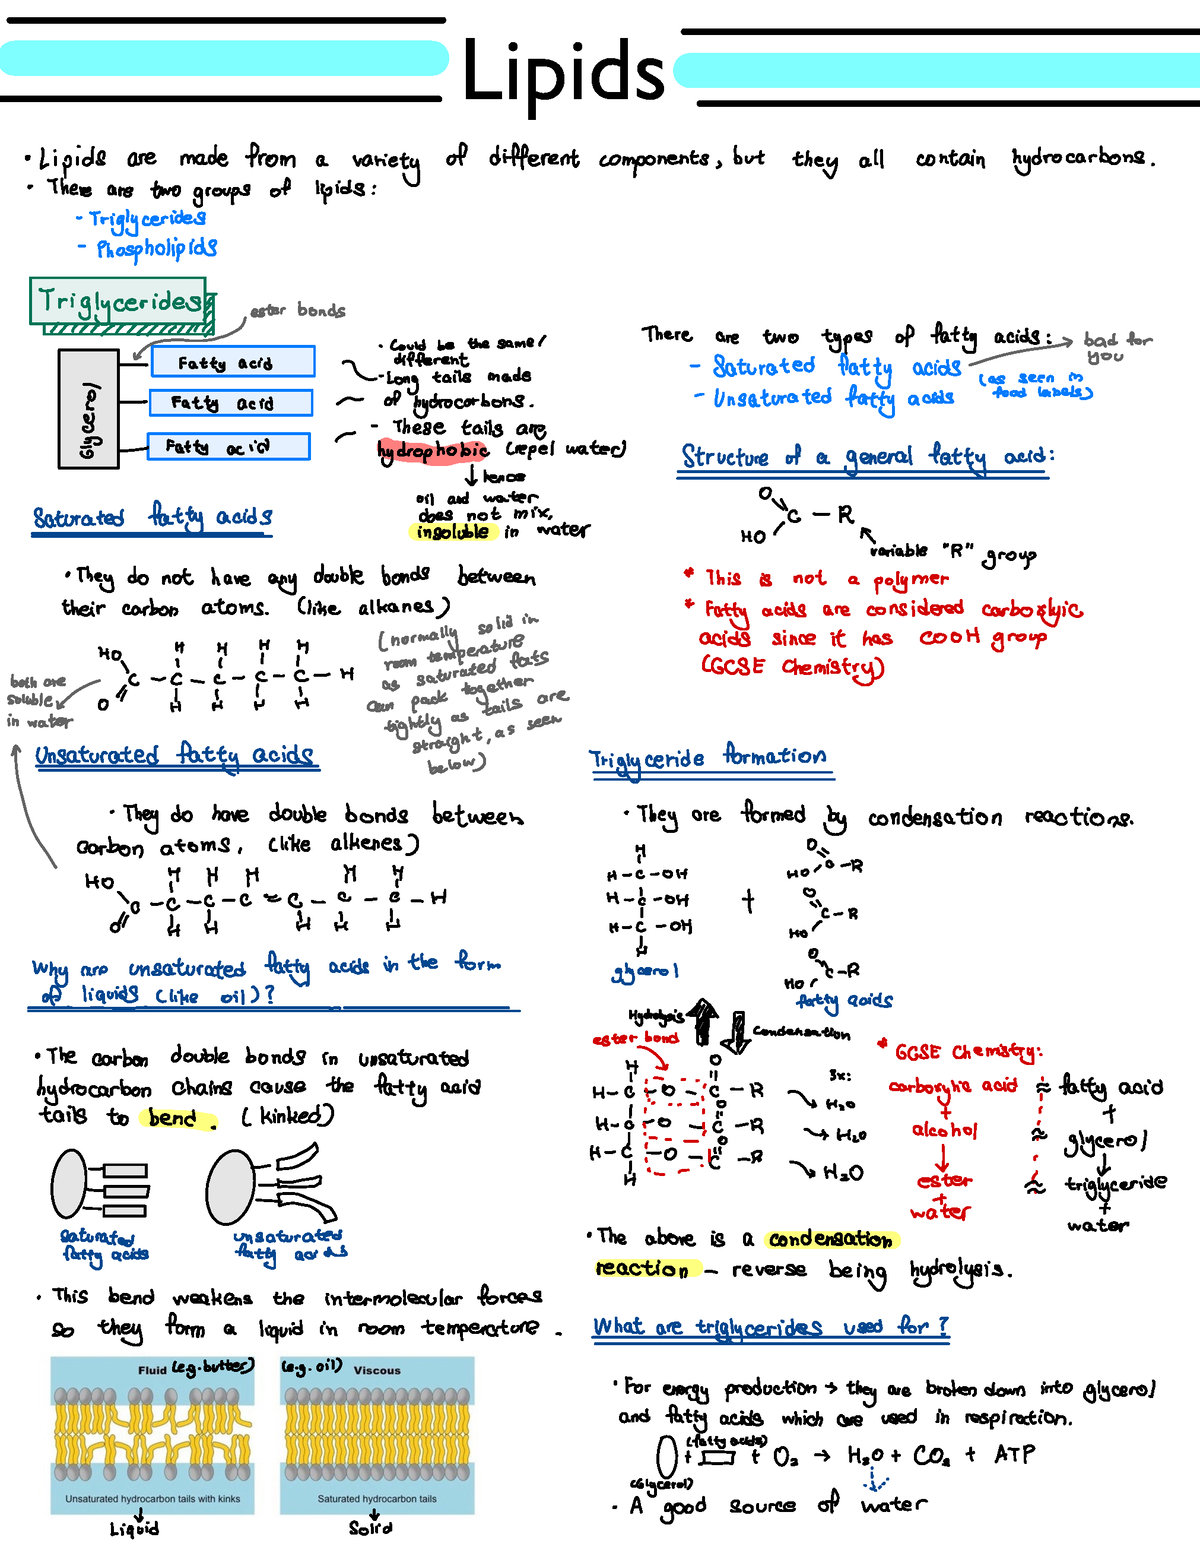 Lipids
• Lipids are made from a variety of different components, but they all contain hydrocarbons.
• There are two groups of lipids:
- Triglycerides
- Phospholipids
Triglycerides
ester bonds
Glycerol
Fatty acid
Fatty acid
Fatty acid
• Could be the same/
different
- Long tails made
of hydrocarbons.
- These tails are
hydrophobic (repel water)
↓ hence
oil and water
does not mix,
insoluble in water
There are two types of fatty acids:
- Saturated fatty acids
- Unsaturated fatty acids
bad for
you
(as seen in
food labels)
Structure of a general fatty acid:
O
C - R
HO
variable "R" group
* This is not a polymer
* Fatty acids are considered carboxlyic
acids since it has COOH group
(GCSE Chemistry)
Saturated fatty acids
• They do not have any double bonds between
their carbon atoms. (like alkanes)
HO H H H H
C - C - C - C - C - H
O H H H H
both are
soluble
in water
(normally solid in
room temperature
as saturated fats
can pack together
tightly as tails are
straight, as seen
below)
Unsaturated fatty acids
• They do have double bonds between
carbon atoms. (like alkenes)
HO H H H H H
C - C - C - C = C - C - C - H
O H H H H H
Why are unsaturated fatty acids in the form
of liquids (like oil)?
• The carbon double bonds in unsaturated
hydrocarbon chains cause the fatty acid
tails to bend. (kinked)
saturated
fatty acids
unsaturated
fatty acids
• This bend weakens the intermolecular forces
so they form a liquid in room temperature.
Fluid (e.g. butter)
Unsaturated hydrocarbon tails with kinks
Liquid
(e.g. oil) Viscous
Saturated hydrocarbon tails
Solid
Triglyceride formation
• They are formed by condensation reactions.
H
H - C - OH
H - C - OH
H - C - OH
H
glycerol
+
O
HO C - R
O
C - R
HO
O
C - R
HO
fatty acids
Hydrolysis
Condensation
ester bond
H O
H - C - O - C - R
O
H - C - O - C - R
O
H - C - O - C - R
H
3x:
H₂O
H₂O
H₂O
* GCSE Chemistry:
carboxylic acid ≈ fatty acid
+ +
alcohol ≈ glycerol
↓ ↓
ester ≈ triglyceride
+ +
water water
• The above is a condensation
reaction - reverse being hydrolysis.
What are triglycerides used for?
• For energy production → they are broken down into glycerol
and fatty acids which are used in respiration.
(fatty acids)
+ + O₂ → H₂O + CO₂ + ATP
(Glycerol)
• A good source of water